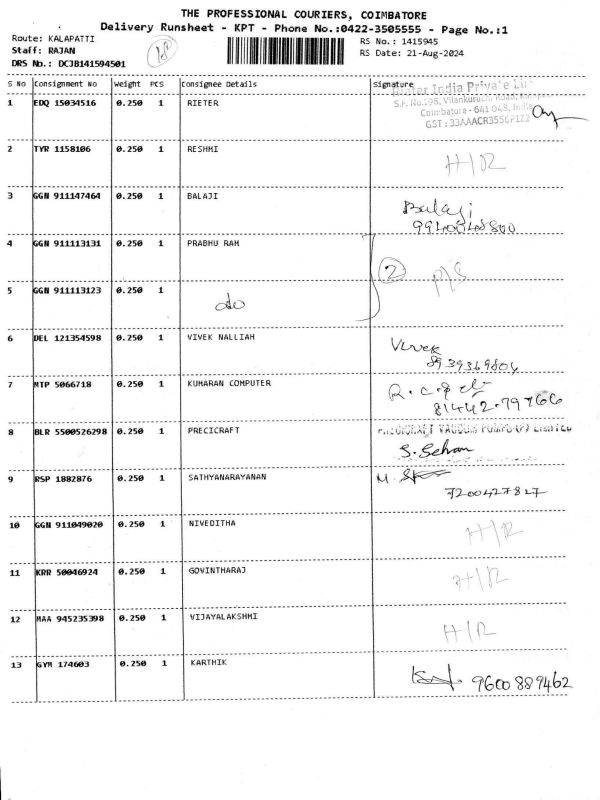 THE PROFESSIONAL COURIERS, COIMBATORE
Delivery Runsheet - KPT - Phone No.:0422-3505555 - Page No.:1
Route: KALAPATTI
RS No.: 1415945
Staff: RAJAN
RS Date: 21-Aug-2024
DRS No.: DCJB141594501
S No Consignment No Weight PCS Consignee Details Signature
India Private
S.F. No.198, Vilankurichi Road,
Coimbatore - 641 048, India
GST : 33AAACR3556P1Z2
1 EDQ 15034516 0.250 1 RIETER
2 TYR 1158106 0.250 1 RESHMI H/R
3 GGN 911147464 0.250 1 BALAJI Balaji
9940048800
4 GGN 911113131 0.250 1 PRABHU RAM
2 P/S
5 GGN 911113123 0.250 1 do
6 DEL 121354598 0.250 1 VIVEK NALLIAH Vivek
8939369804
7 MTP 5066718 0.250 1 KUMARAN COMPUTER
81442-79766
8 BLR 5500526298 0.250 1 PRECICRAFT PRECICRAFT VACUUM PUMPS (P) LIMITED
S. Sehan
9 RSP 1882876 0.250 1 SATHYANARAYANAN M.
7200427827
10 GGN 911049020 0.250 1 NIVEDITHA H/R
11 KRR 50046924 0.250 1 GOVINTHARAJ H/R
12 MAA 945235398 0.250 1 VIJAYALAKSHMI H/R
13 GYM 174603 0.250 1 KARTHIK
9600889462